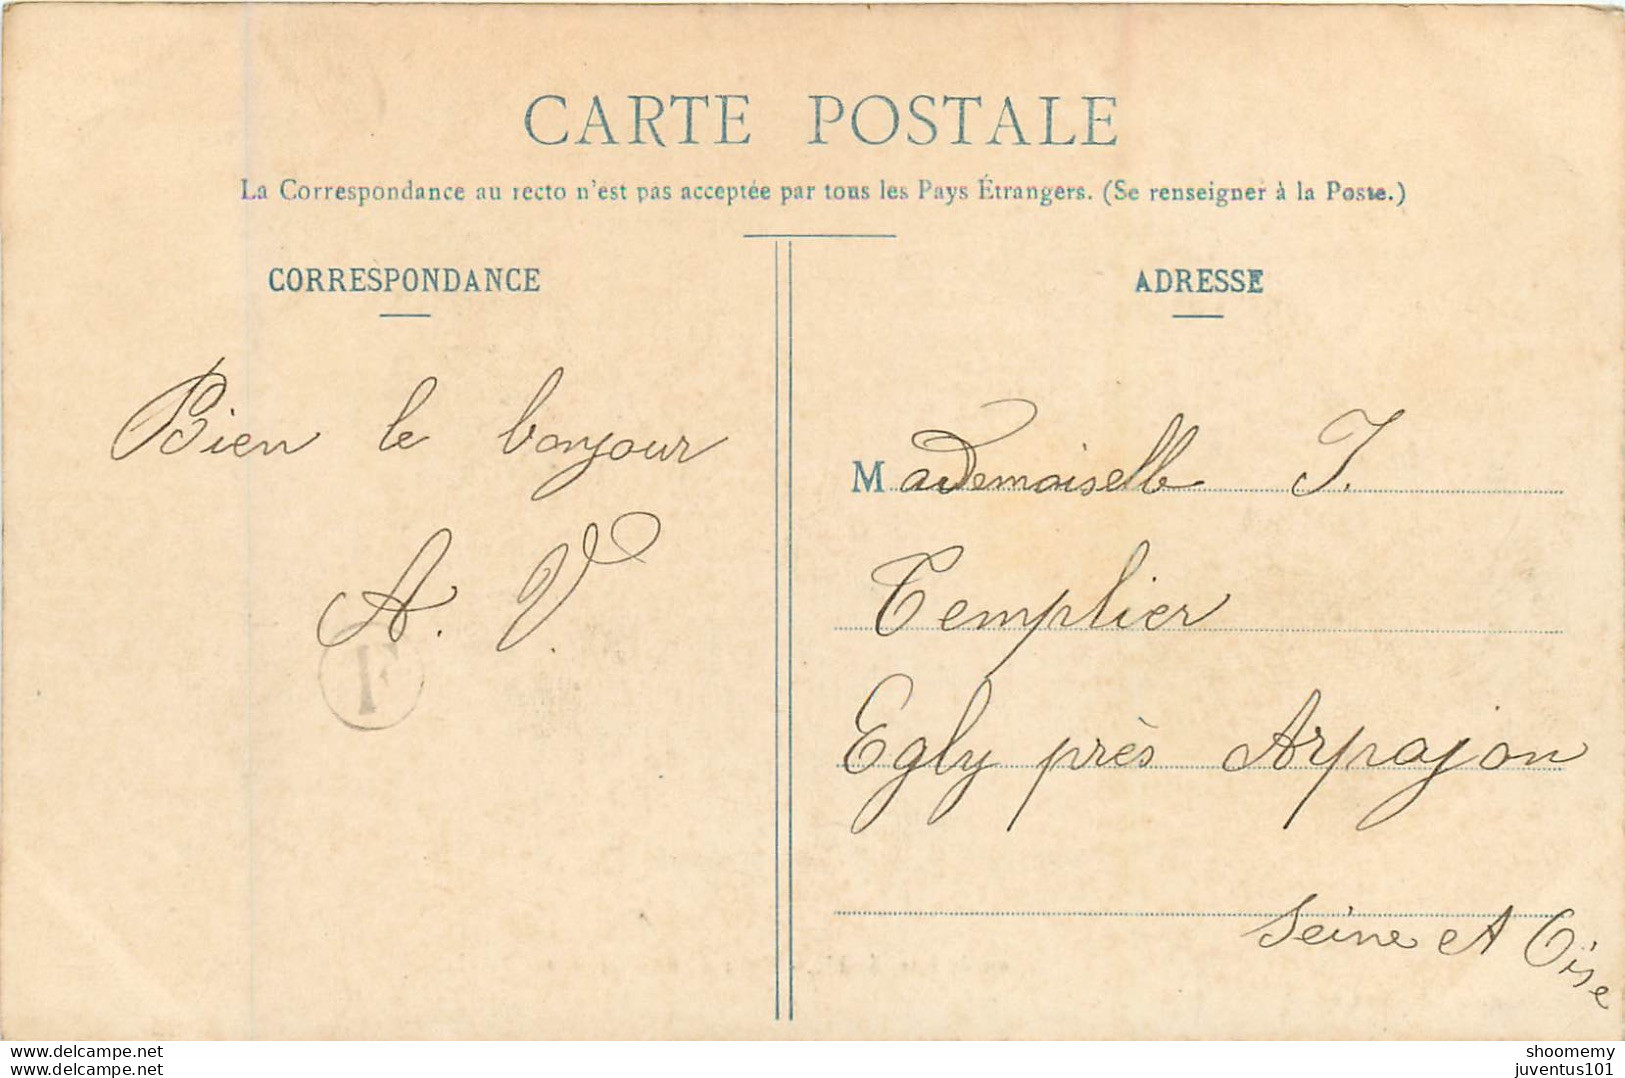 CARTE POSTALE
La Correspondance au recto n'est pas acceptée par tous les Pays Étrangers. (Se renseigner à la Poste.)
CORRESPONDANCE
Bien le bonjour
A. V.
F
ADRESSE
Mademoiselle J.
Templier
Egly près Arpajon
Seine et Oise
www.delcampe.net
www.delcampe.net
shoomemy
juventus101